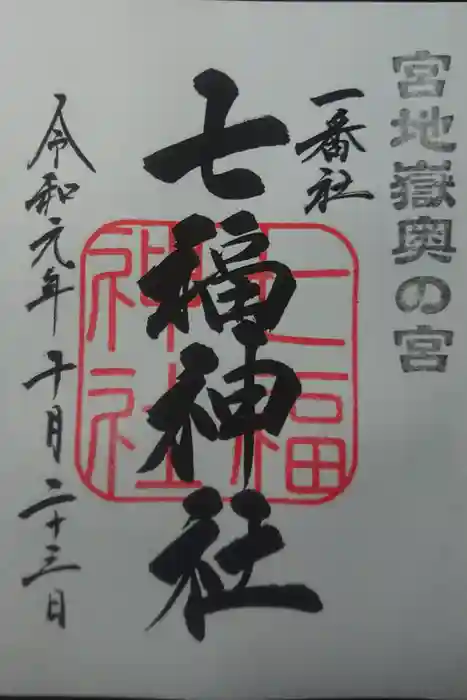 宮地嶽奥の宮
一番社
七福神社
七福神社
令和元年十月二十三日